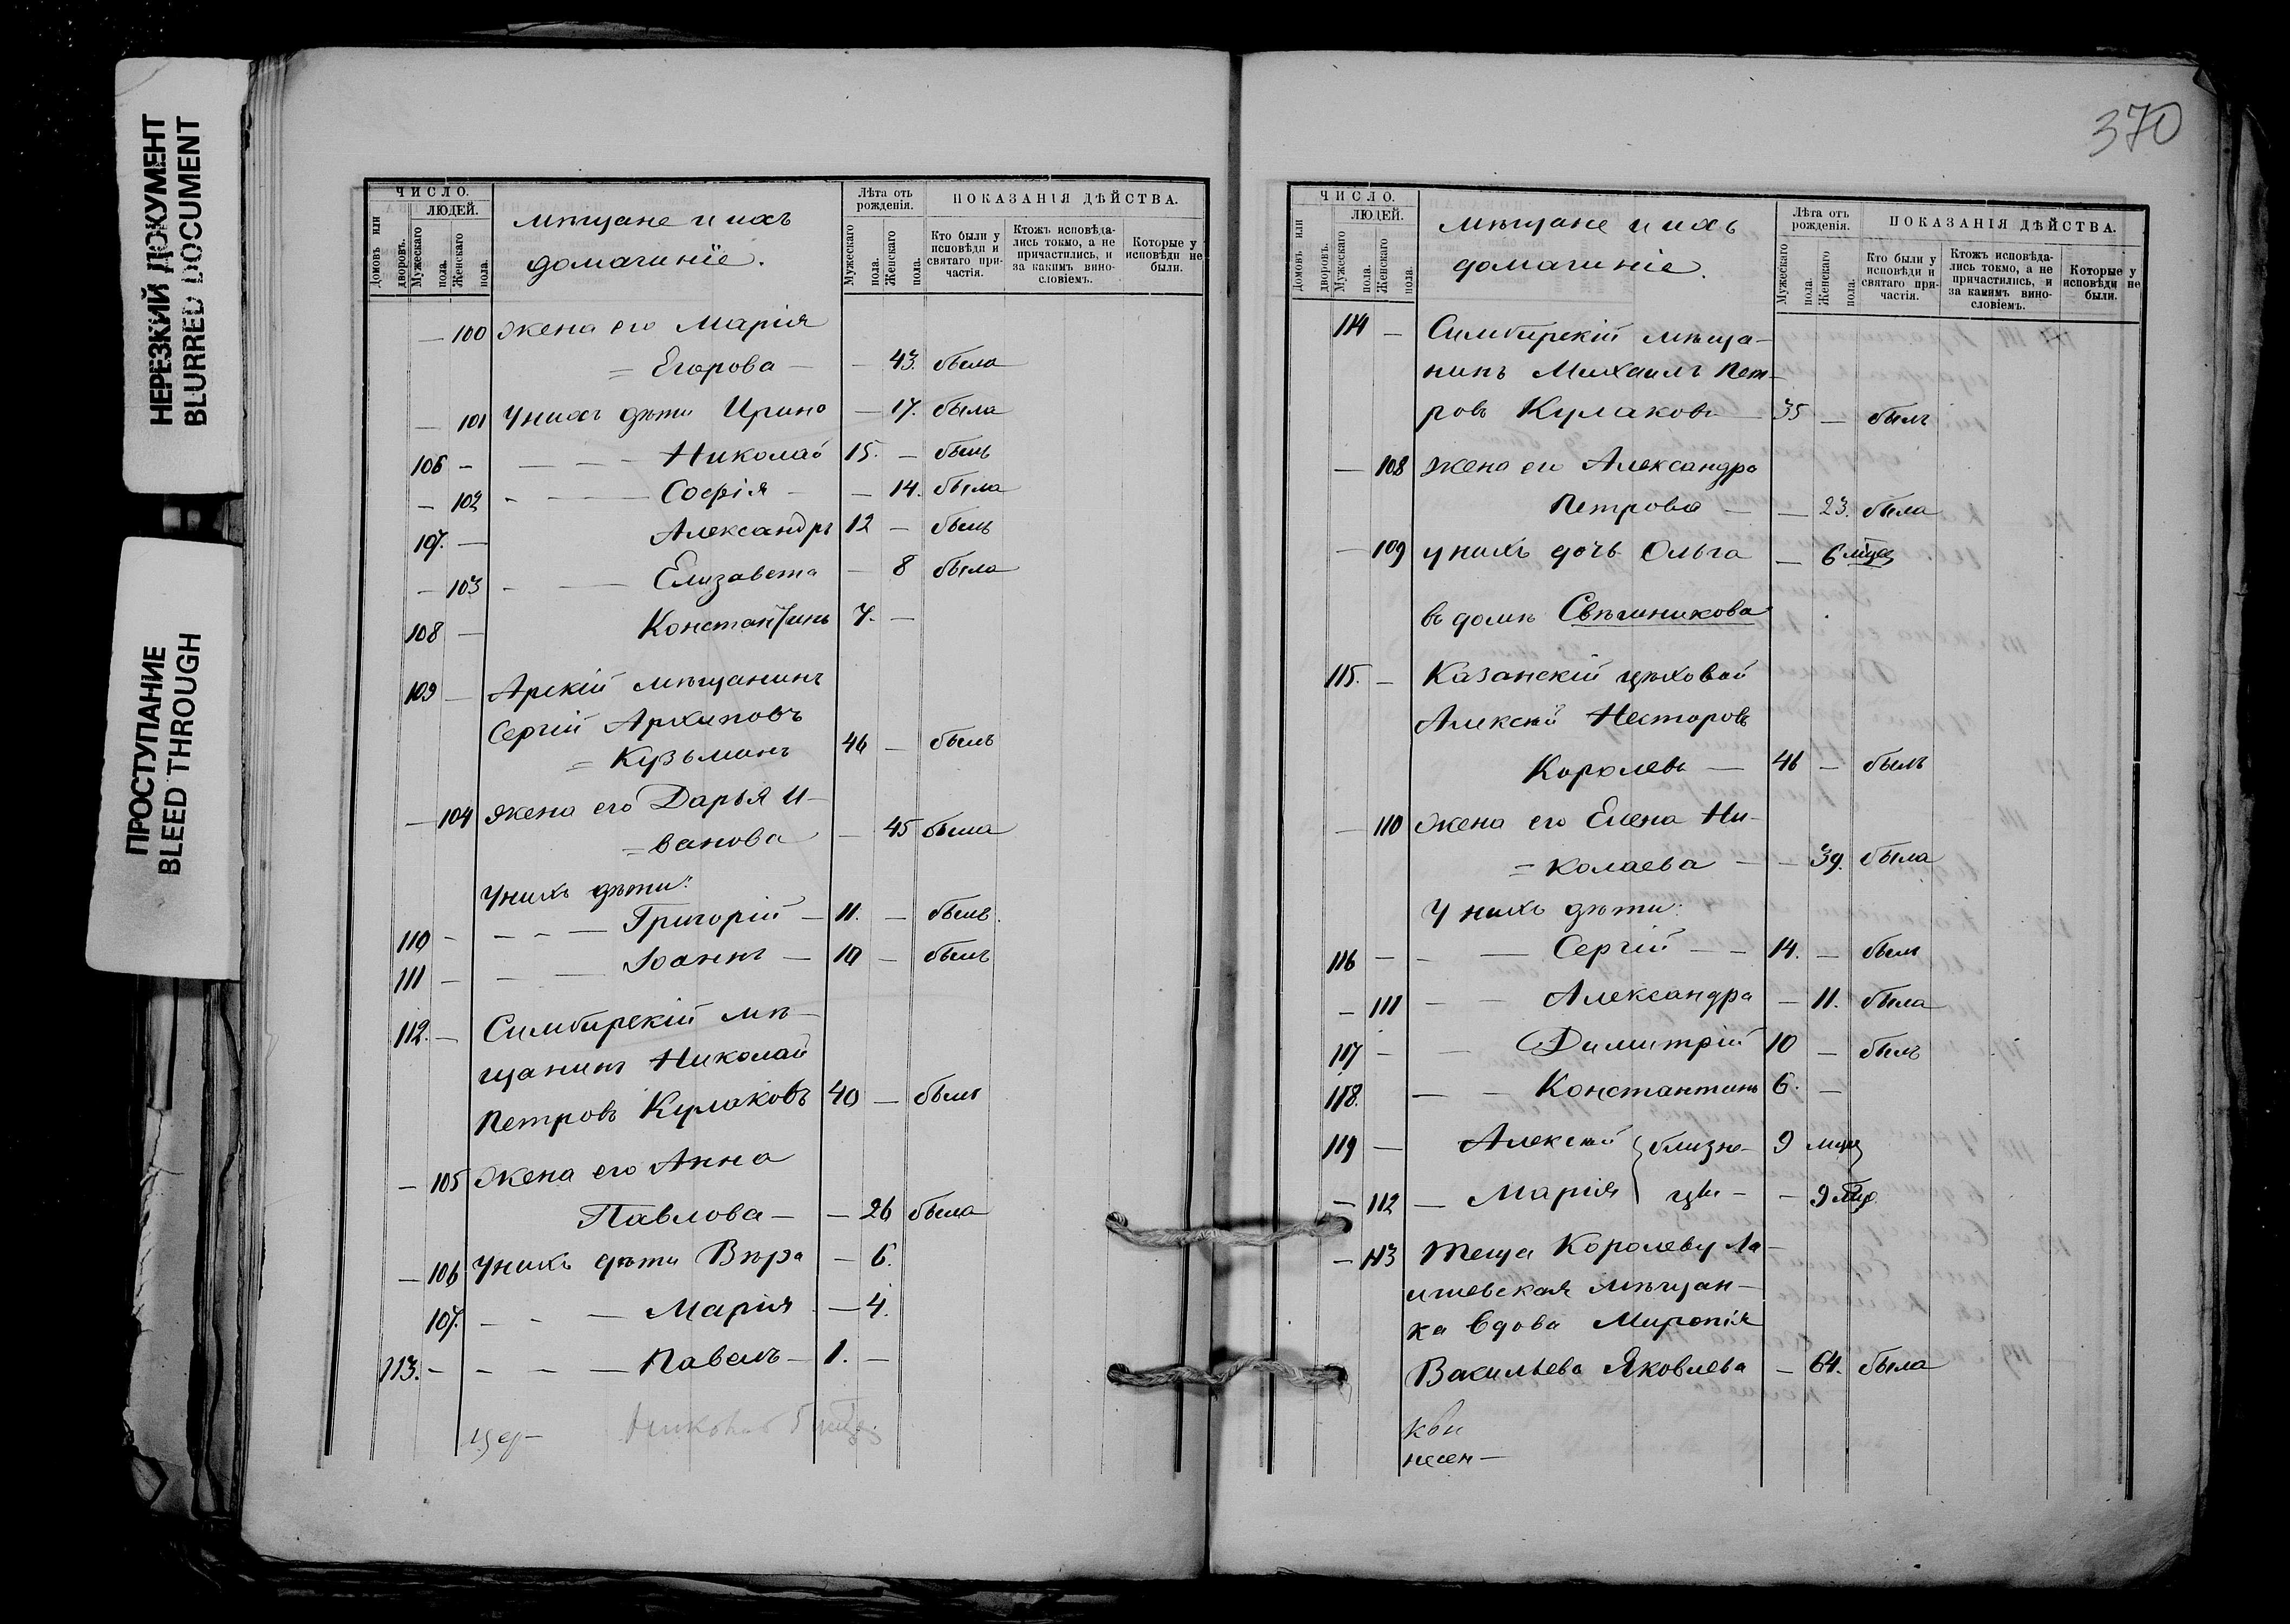 НЕРЕЗКИЙ ДОКУМЕНТ
BLURRED DOCUMENT
ПРОСТУПАНИЕ
BLEED THROUGH
ЧИСЛО.
ЛЮДЕЙ.
Домовъ или дворовъ.
Мужескаго пола.
Женскаго пола.
мѣщане и ихъ
домашніе.
Лѣта отъ рожденія.
Мужескаго пола.
Женскаго пола.
ПОКАЗАНІЯ ДѢЙСТВА.
Кто были у исповѣди и святаго причастія.
Ктожъ исповѣдались токмо, а не причастились, и за какимъ винословіемъ.
Которые у исповѣди не были.
— 100 жена его Марія
= Егорова — — 43. была
— 101 У нихъ дѣти Ирина — 17. была
106 — — — — Николай 15. — былъ
— 102 - — — Софія — — 14. была
107. — Александръ 12 — былъ
— 103 - — Елизавета — 8 была
108 — Константинъ 7. —
109 — Арскій мѣщанинъ
Сергій Архиповъ
= Кузьминъ 46 — былъ
— 104 жена его Дарья И-
=ванова — 45 была
У нихъ дѣти:
110 - — - — Григорій — 11. — былъ.
111 — — — Іоаннъ — 10 — былъ
112. — Симбирскій мѣ-
щанинъ Николай
Петровъ Кулаковъ 40 — былъ
— 105 Жена его Анна
Павлова — — 26 была
— 106 У нихъ дѣти Вѣра — 6.
107. — - — Марія — 4.
113. — - — — Павелъ — 1. —
370
ЧИСЛО.
ЛЮДЕЙ.
Домовъ или дворовъ.
Мужескаго пола.
Женскаго пола.
мѣщане и ихъ
домашніе.
Лѣта отъ рожденія.
Мужескаго пола.
Женскаго пола.
ПОКАЗАНІЯ ДѢЙСТВА.
Кто были у исповѣди и святаго причастія.
Ктожъ исповѣдались токмо, а не причастились, и за какимъ винословіемъ.
Которые у исповѣди не были.
114 — Симбирскій мѣща-
нинъ Михаилъ Пет-
ровъ Кулаковъ 35 — былъ
— 108 жена его Александра
Петрова — — 23. была
— 109 у нихъ дочь Ольга — 6 мѣц
въ домѣ Свѣшникова
115. — Казанскій цѣховой
Алексѣй Несторовъ
Королевъ — 46 — былъ
— 110 Жена его Елена Ни-
= колаева — — 39. была
У нихъ дѣти:
116 — - — Сергій — — 14. — былъ
— 111 — — Александра — 11. была
117 — — Димитрій 10 — былъ
118. — — Константинъ 6. —
119 — Алексѣй } близне- 9 мѣц
— 112 — Марія } цы — — 9 мѣц.
— 113 Теща Королеву Ла-
ишевская мѣщан-
ка вдова Миропія
Васильева Яковлева — 64. была